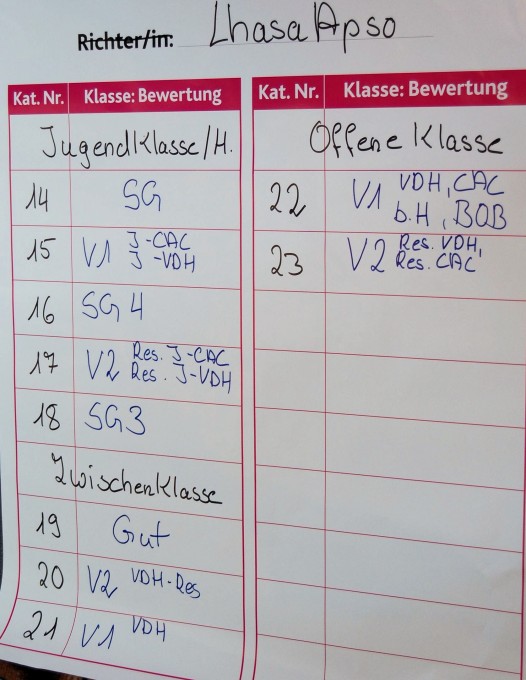 Richter/in: Lhasa Apso
Kat. Nr. Klasse: Bewertung
Jugendklasse/H.
14 SG
15 V1 J-CAC
J-VDH
16 SG 4
17 V2 Res. J-CAC
Res. J-VDH
18 SG3
Zwischenklasse
19 Gut
20 V2 VDH-Res
21 V1 VDH
Kat. Nr. Klasse: Bewertung
Offene Klasse
22 V1 VDH, CAC
b.H, BOB
23 V2 Res. VDH,
Res. CAC